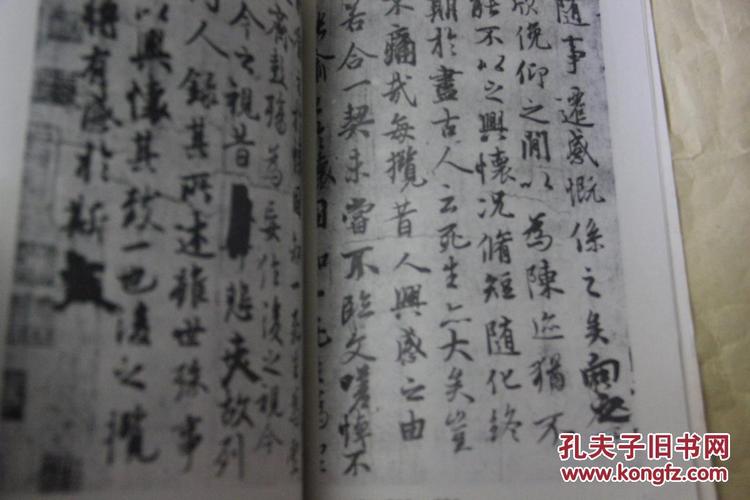 隨事遷感慨係之矣向之
欣俛仰之閒以為陳迹猶不
能不以之興懷況脩短隨化終
期於盡古人云死生亦大矣豈
不痛哉每攬昔人興感之由
若合一契未嘗不臨文嗟悼不
喻 懷固知一死生為
齊彭殤為妄作後之視今
今之視昔 悲夫故列
人錄其所述雖世殊事
以興懷其致一也後之攬
將有感於斯文
孔夫子旧书网
www.kongfz.com